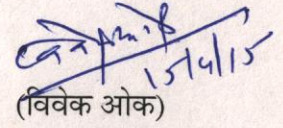 15/4/15
(विवेक ओक)